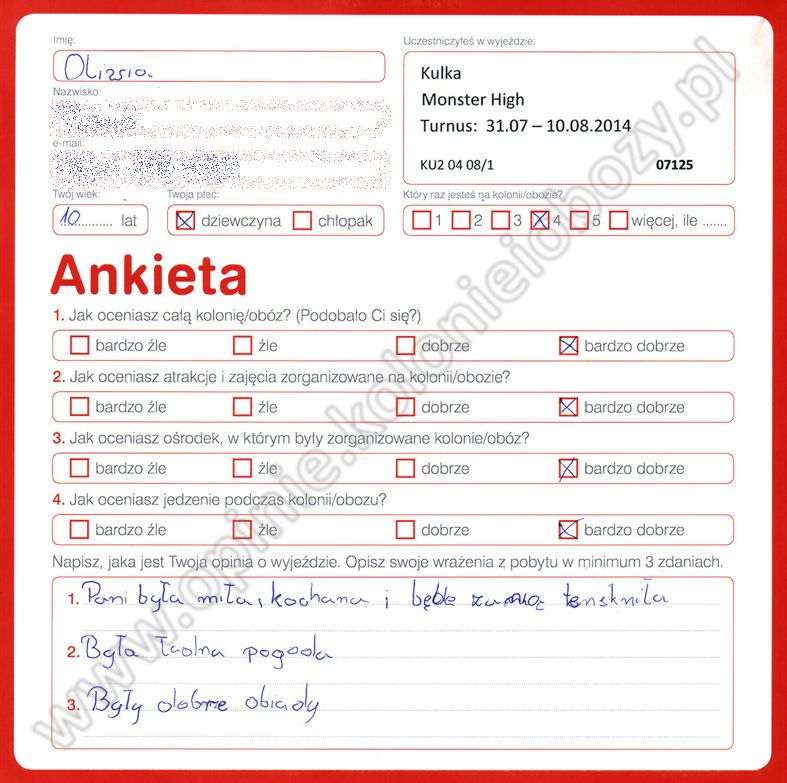 Imię:
Oliwia
Nazwisko:
e-mail:
Twój wiek:
10 lat
Twoja płeć:
dziewczyna chłopak
Uczestniczyłeś w wyjeździe:
Kulka
Monster High
Turnus: 31.07 – 10.08.2014
KU2 04 08/1 07125
Który raz jesteś na kolonii/obozie?
1 2 3 4 5 więcej, ile .......
Ankieta
1. Jak oceniasz całą kolonię/obóz? (Podobało Ci się?)
bardzo źle źle dobrze bardzo dobrze
2. Jak oceniasz atrakcje i zajęcia zorganizowane na kolonii/obozie?
bardzo źle źle dobrze bardzo dobrze
3. Jak oceniasz ośrodek, w którym były zorganizowane kolonie/obóz?
bardzo źle źle dobrze bardzo dobrze
4. Jak oceniasz jedzenie podczas kolonii/obozu?
bardzo źle źle dobrze bardzo dobrze
Napisz, jaka jest Twoja opinia o wyjeździe. Opisz swoje wrażenia z pobytu w minimum 3 zdaniach.
1. Pani była miła, kochana i będe za nią tenskniła
2. Była ładna pogoda
3. Były dobre obiady
www.opinie.kolonieiobozy.pl